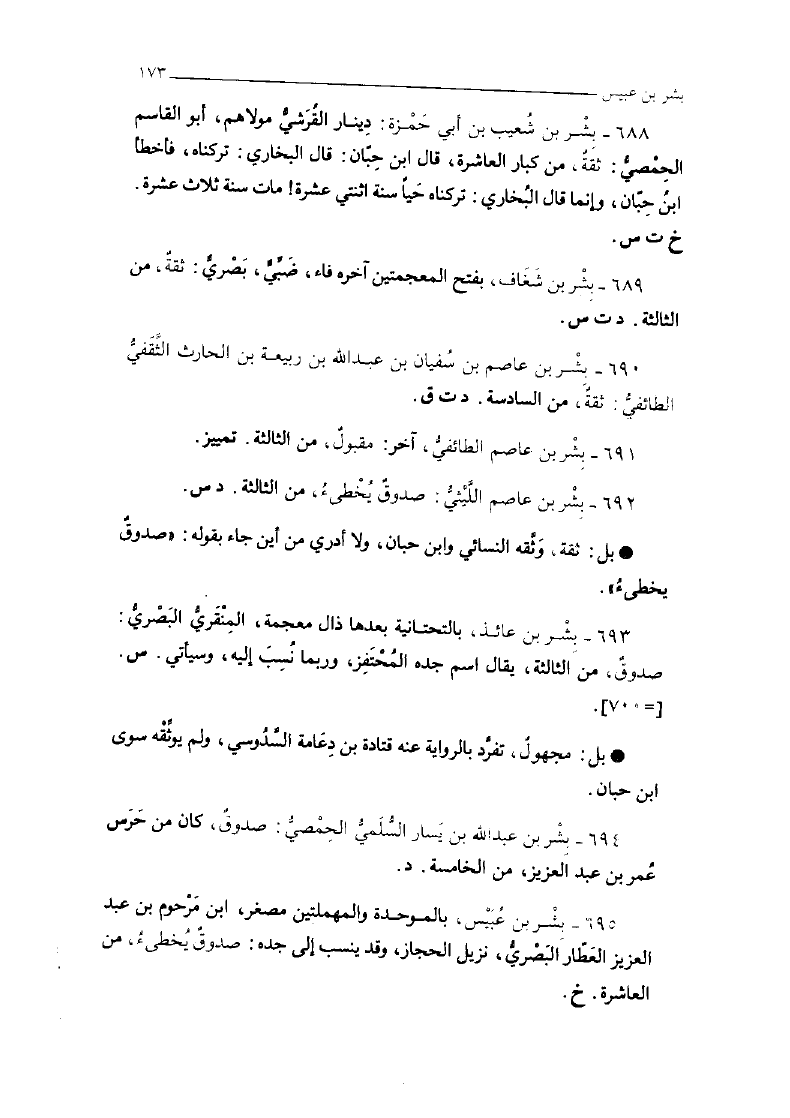 بشر بن عبيس ١٧٣
٦٨٨ ـ بِشْر بن شُعيب بن أبي حَمْزة: دِينار القُرَشيُّ مولاهم، أبو القاسم
الحِمْصيُّ: ثقةٌ، من كبار العاشرة، قال ابن حِبّان: قال البخاري: تركناه، فأخطأ
ابنُ حِبّان، وإنما قال البُخاري: تركناه حَياً سنة اثنتي عشرة! مات سنة ثلاث عشرة.
خ ت س.
٦٨٩ ـ بِشْر بن شَغَاف، بفتح المعجمتين آخره فاء، ضَبِّيٌّ، بَصْريٌّ: ثقةٌ، من
الثالثة. د ت س.
٦٩٠ ـ بِشْر بن عاصم بن سُفيان بن عبدالله بن ربيعة بن الحارث الثَّقَفيُّ
الطائفيُّ: ثقةٌ، من السادسة. د ت ق.
٦٩١ ـ بِشْر بن عاصم الطائفيُّ، آخر: مقبولٌ، من الثالثة. تمييز.
٦٩٢ ـ بِشْر بن عاصم اللَّيْثيُّ: صدوقٌ يُخْطىءُ، من الثالثة. د س.
● بل: ثقة، وَثَّقه النسائي وابن حبان، ولا أدري من أين جاء بقوله: «صدوقٌ
يخطىءُ».
٦٩٣ ـ بِشْر بن عائذ، بالتحتانية بعدها ذال معجمة، المِنْقَريُّ البَصْريُّ:
صدوقٌ، من الثالثة، يقال اسم جده المُحْتَفِز، وربما نُسِبَ إليه، وسيأتي. س.
[= ٧٠٠].
● بل: مجهولٌ، تفرَّد بالرواية عنه قتادة بن دِعَامة السَّدُوسي، ولم يوثِّقْه سوى
ابن حبان.
٦٩٤ ـ بِشْر بن عبدالله بن يَسار السُّلَميُّ الحِمْصيُّ: صدوقٌ، كان من حَرَس
عُمر بن عبد العزيز، من الخامسة. د.
٦٩٥ ـ بِشْر بن عُبَيْس، بالموحدة والمهملتين مصغر، ابن مَرْحوم بن عبد
العزيز العَطّار البَصْريُّ، نزيل الحجاز، وقد ينسب إلى جده: صدوقٌ يُخطىءُ، من
العاشرة. خ.